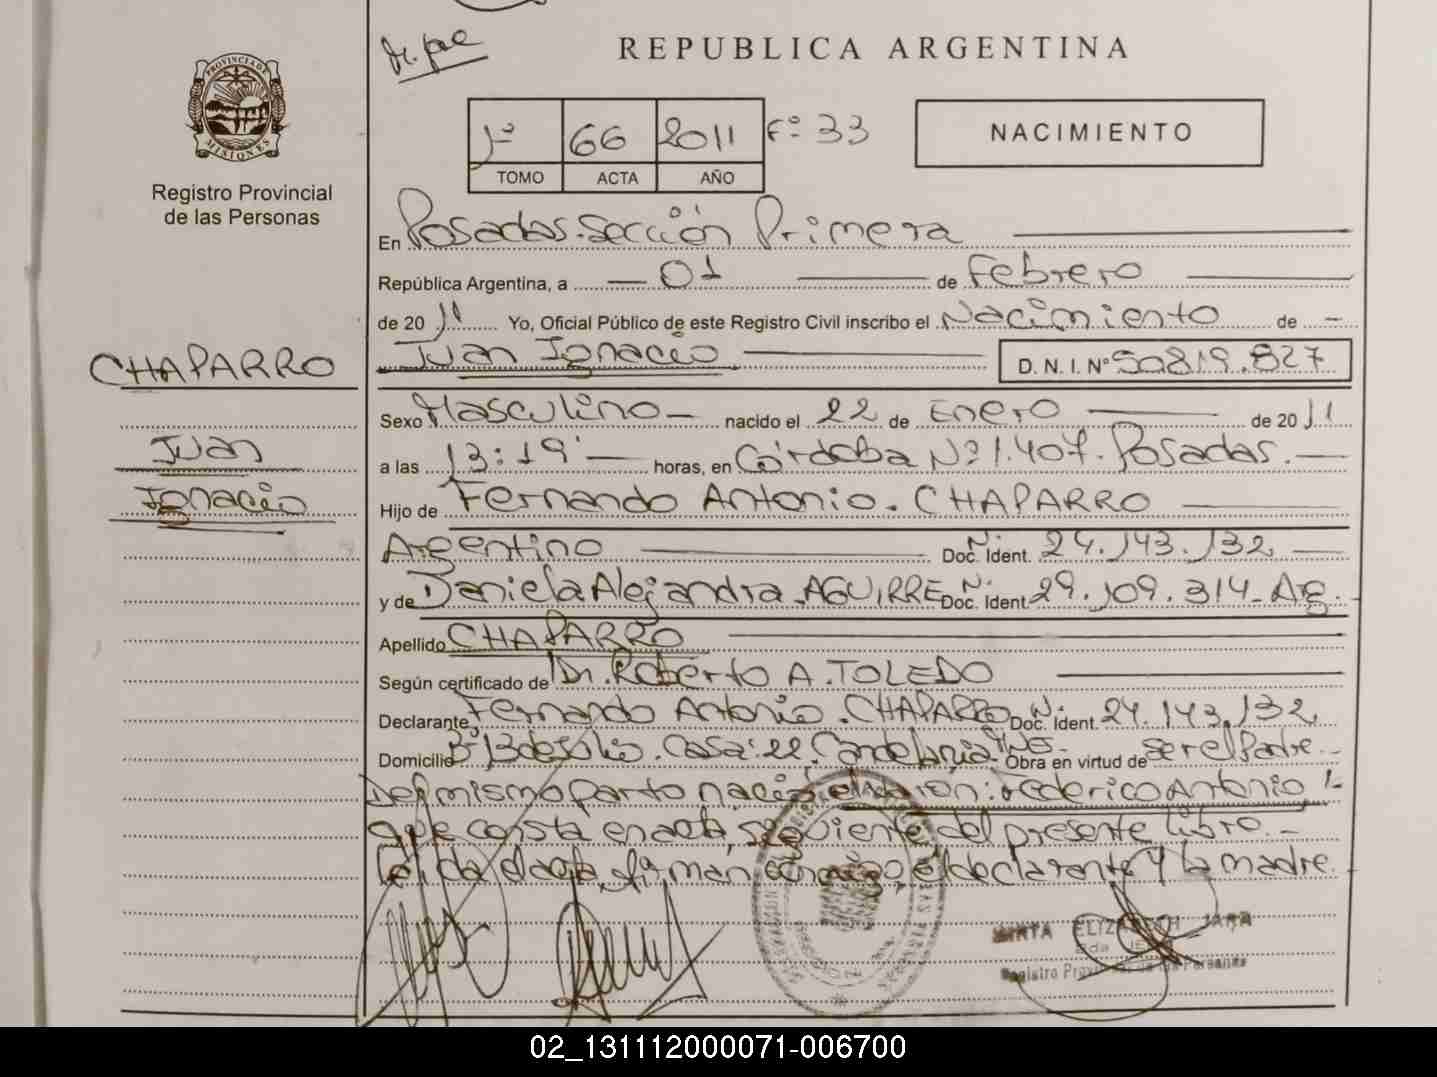 REPUBLICA ARGENTINA
PROVINCIA DE MISIONES
Registro Provincial
de las Personas
1º 66 2011 Fº 33
TOMO ACTA AÑO
NACIMIENTO
En Posadas. Sección Primera
República Argentina, a 01 de Febrero
de 2011 Yo, Oficial Público de este Registro Civil inscribo el Nacimiento de
Juan Ignacio D. N. I. Nº 50.819.827
CHAPARRO
Juan
Ignacio
Sexo Masculino nacido el 22 de Enero de 2011
a las 13:19 horas, en Córdoba Nº 1.407. Posadas.
Hijo de Fernando Antonio. CHAPARRO
Argentino Doc. Ident. Nº 24.143.132
y de Daniela Alejandra. AGUIRRE Doc. Ident. Nº 29.109.314 - Arg.
Apellido CHAPARRO
Según certificado de Dr. Roberto A. TOLEDO
Declarante Fernando Antonio. CHAPARRO Doc. Ident. Nº 24.143.132
Domicilio Bº. Casa: 22. Candelaria Obra en virtud de ser el Padre.-
Del mismo parto nació el varón: Federico Antonio
que consta en acta, siguiente del presente libro.-
Leída el acta, firman conmigo, el declarante y la madre.
MIRTA ELIZABETH JARA
Registro Provincial de las Personas
02_131112000071-006700